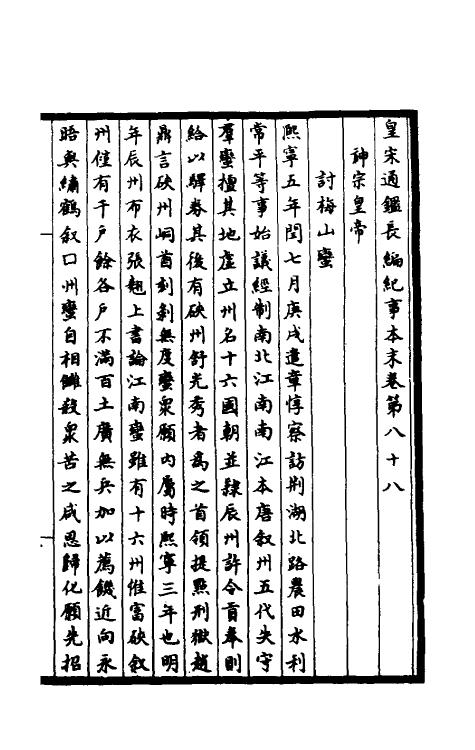 皇宋通鑑長編紀事本末卷第八十八
神宗皇帝
討梅山蠻
熙寧五年閏七月庚戌遣章惇察訪荆湖北路農田水利
常平等事始議經制南北江南南江本唐叙州五代失守
羣蠻擅其地虛立州名十六國朝並隸辰州許令貢奉則
給以驛券其後有硤州舒光秀者為之首領提點刑獄趙
鼎言硤州峒酋刻剝無度蠻衆願內屬時熙寧三年也明
年辰州布衣張翹上書論江南蠻雖有十六州惟富硤叙
州僅有千戶餘各戶不滿百土廣無兵加以薦饑近向永
晤與繡鶴叙口州蠻自相讎殺衆苦之咸思歸化願先招